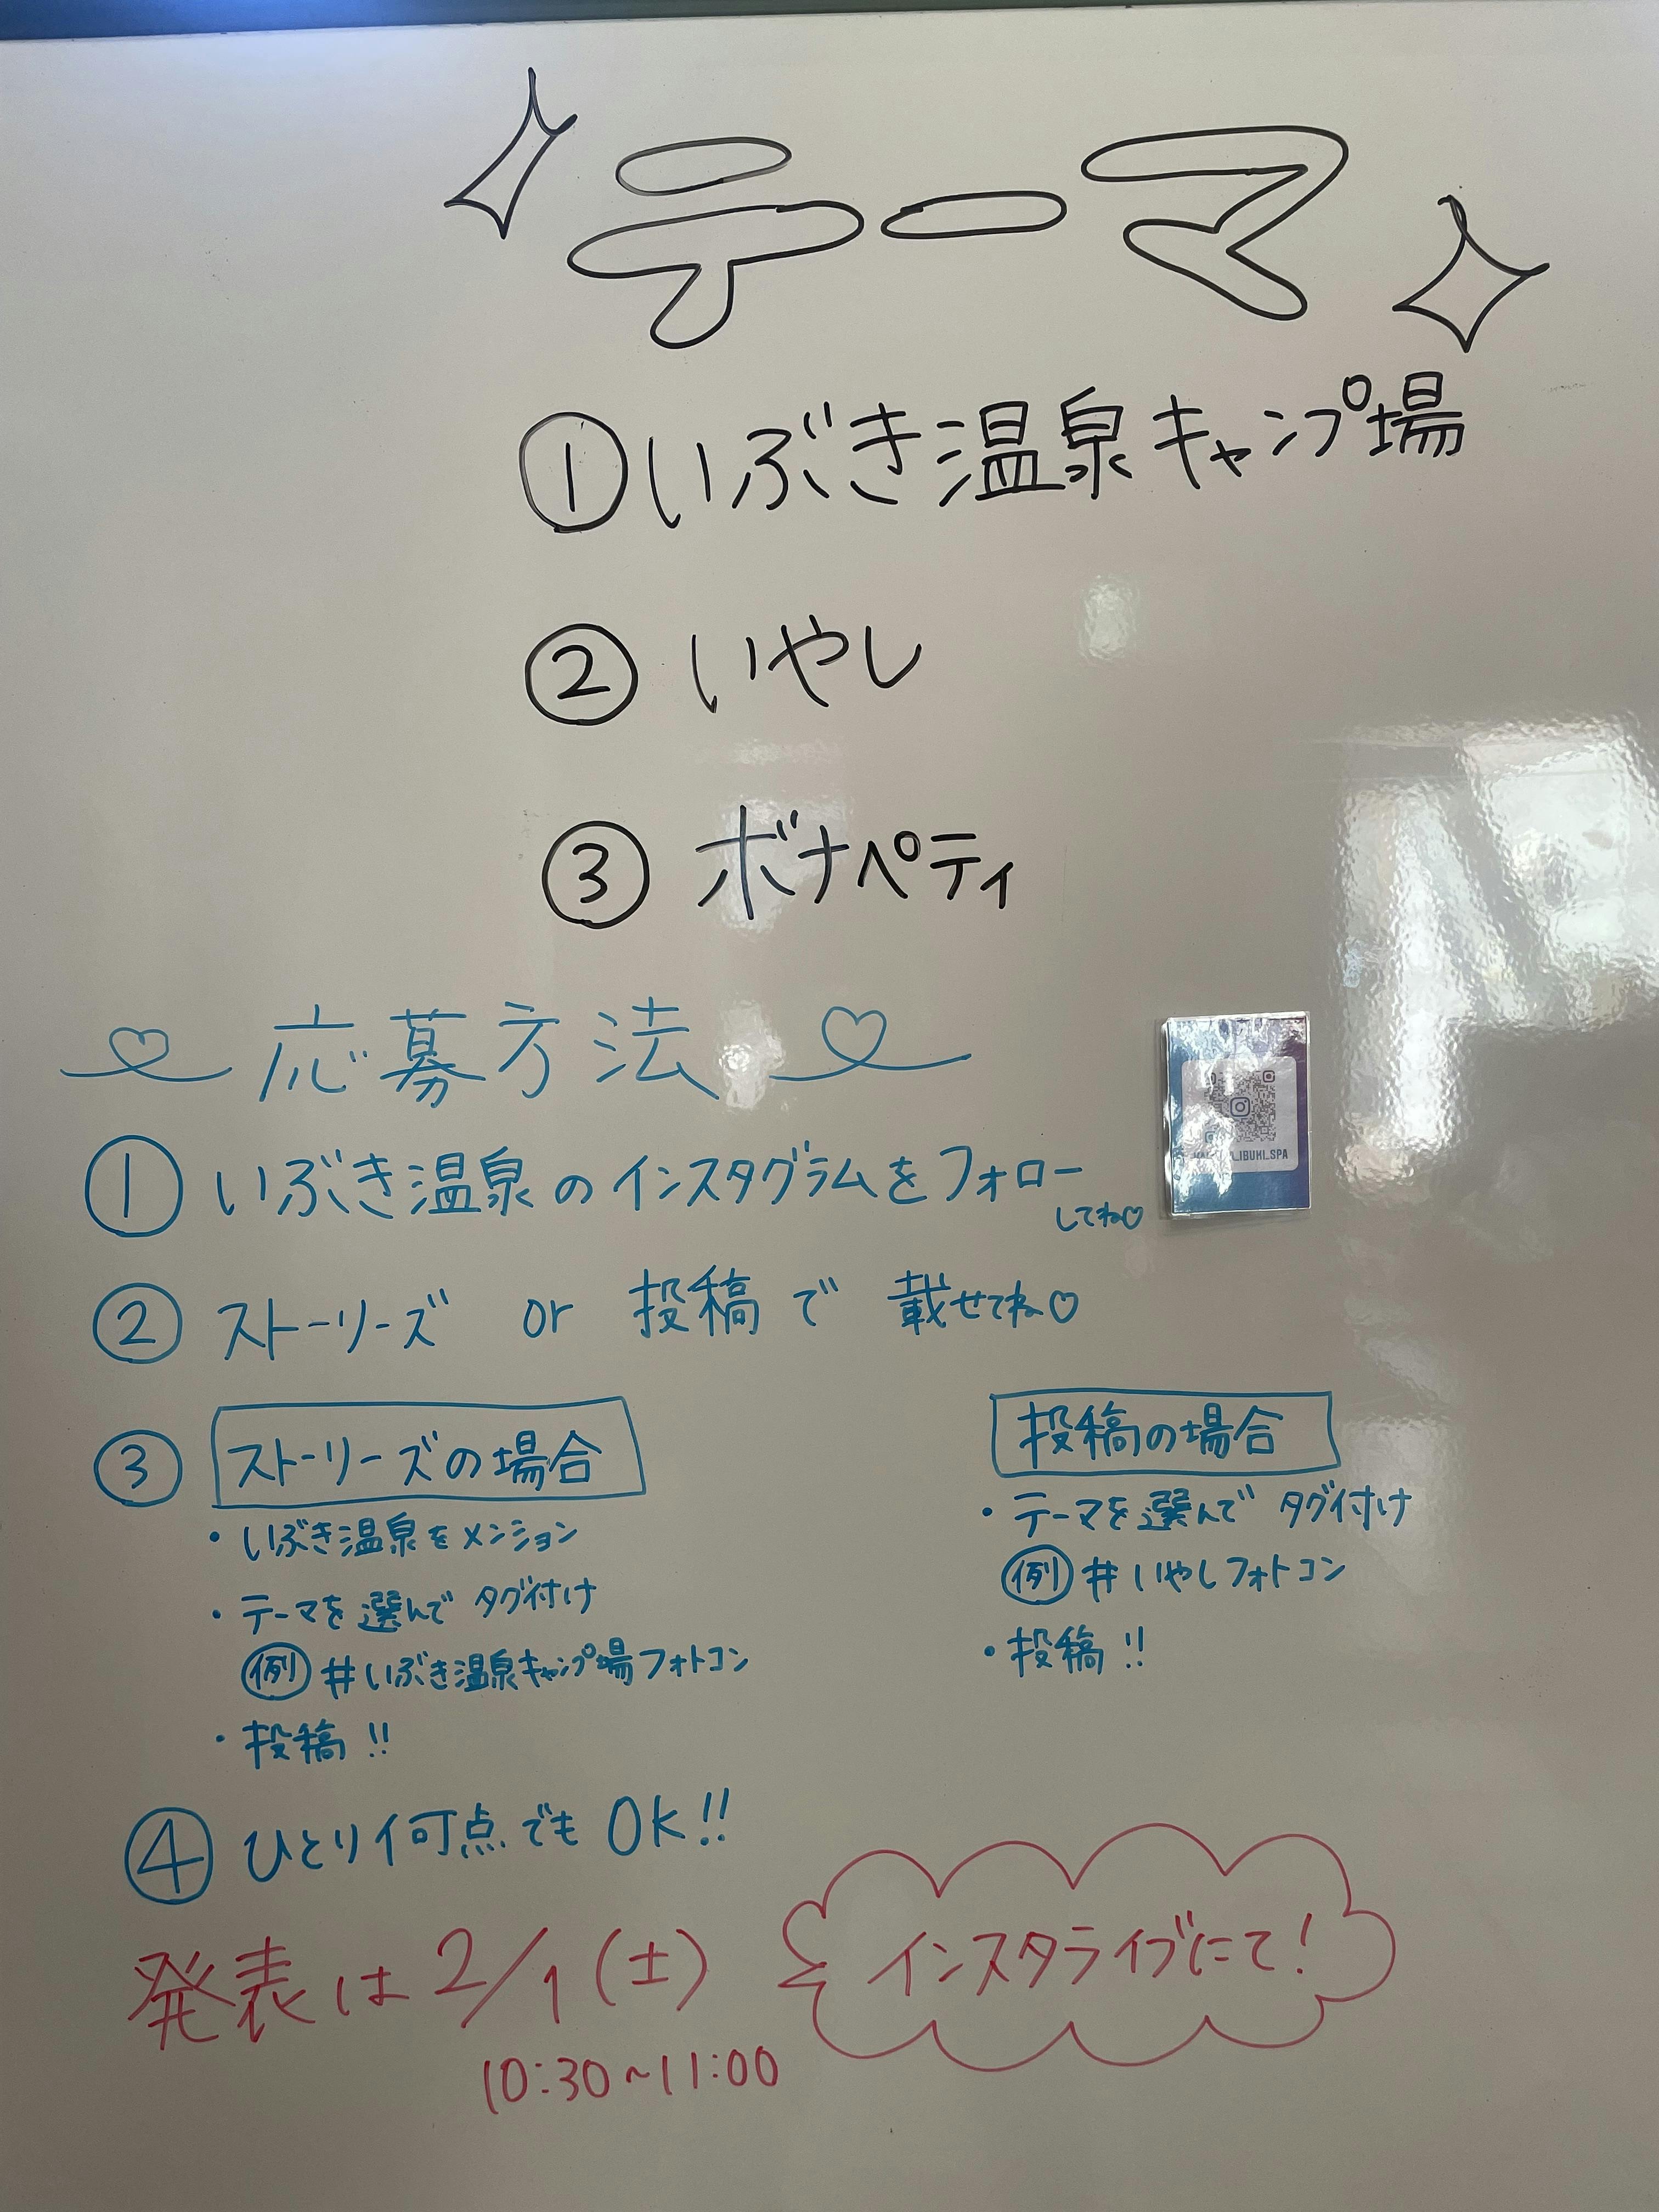 テーマ
①いぶき温泉キャンプ場
② いやし
③ ボナペティ
応募方法
① いぶき温泉のインスタグラムをフォロー
してね♡
_IBUKI.SPA
② ストーリーズ or 投稿で 載せてね♡
③ ストーリーズの場合
・いぶき温泉をメンション
・テーマを選んで タグ付け
例 #いぶき温泉キャンプ場フォトコン
・投稿!!
投稿の場合
・テーマを選んで タグ付け
例 #いやしフォトコン
・投稿!!
④ ひとり何点でも OK!!
発表は2/1(土)
10:30~11:00
インスタライブにて!